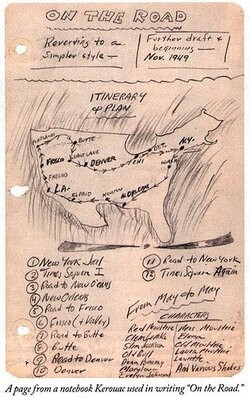 ON THE ROAD
Reverting to a
Simpler style —
Further draft &
beginning —
Nov. 1949
ITINERARY
& PLAN
PORTLAND
BUTTE
SALT LAKE
FRISCO
DENVER
CHI
DET.
N.Y.
WASH.
FRESNO
L.A.
EL PASO
HOUSTON
N. ORLEANS
① New York Jail
② Times Square I
③ Road to New Orleans
④ New Orleans
⑤ Road to Frisco
⑥ Frisco (& Valley)
⑦ Road to Butte
⑧ Butte
⑨ Road to Denver
⑩ Denver
⑪ Road to New York
⑫ Times Square Again
From May to May
CHARACTERS
Red Moultrie
Slim Jackson
Old Bill
Dean Pomeray
Mrs. Moultrie
Old Moultrie
Laura
And Various Shades
A page from a notebook Kerouac used in writing "On the Road."